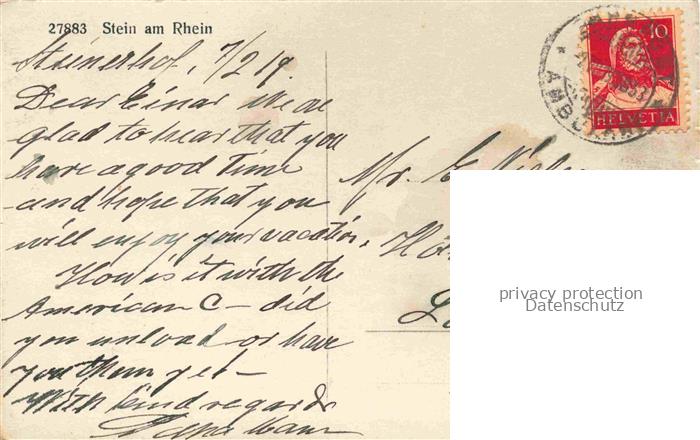 27883 Stein am Rhein
Steinerhof, 7/2 19.
Dear Einar We are
glad to hear that you
have a good time
and hope that you
will enjoy your vacation.
How is it with the
American C— did
you unload or have
you them yet—
With kind regards
Mr. E.
10
HELVETIA
AMBULANT
privacy protection
Datenschutz